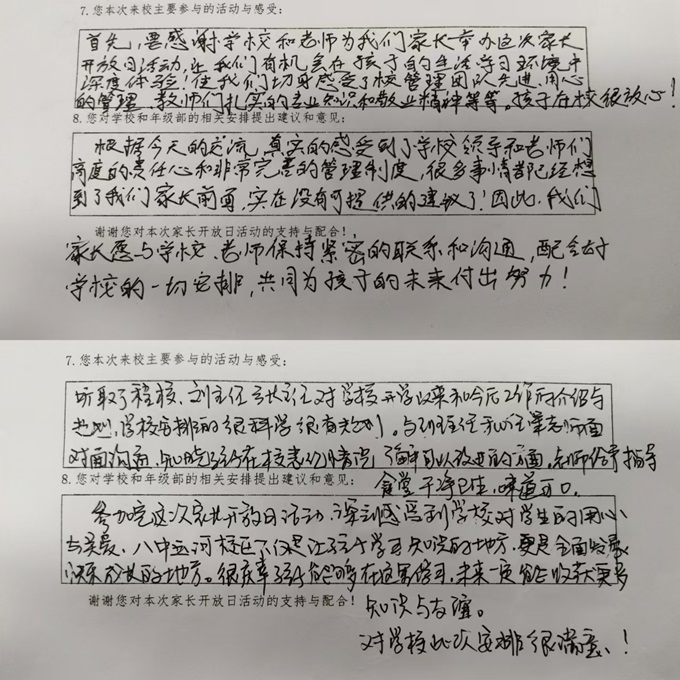 7.您本次来校主要参与的活动与感受:
首先，要感谢学校和老师为我们家长举办这次家长
开放日活动，让我们有机会在孩子的生活学习环境中
深度体验；使我们切身感受了校管理团队先进、用心
的管理，教师们扎实的专业知识和敬业精神等等。孩子在校很放心！
8.您对学校和年级部的相关安排提出建议和意见:
根据今天的交流，真实的感受到了学校领导和老师们
高度的责任心和非常完善的管理制度，很多事情都已经想
到了我们家长前面，实在没有可提供的建议了！因此，我们
谢谢您对本次家长开放日活动的支持与配合！
家长愿与学校、老师保持紧密的联系和沟通，配合好
学校的一切安排，共同为孩子的未来付出努力！
7.您本次来校主要参与的活动与感受:
听取了程校、刘主任、张主任对学校开学以来和今后工作的介绍与
规划，学校安排的很科学很有规划。与班主任和任课老师面
对面沟通，知晓孩子在校表现情况，孩子可以改进的方面，老师给予指导
8.您对学校和年级部的相关安排提出建议和意见:
食堂干净卫生，味道可口。
参加完这次家长开放日活动，深刻感受到学校对学生的用心
与关爱、八中五河校区不仅是让孩子学习知识的地方，更是全面发展
快乐成长的地方。很庆幸孩子能够在这里学习，未来一定能收获更多
谢谢您对本次家长开放日活动的支持与配合！
知识与友谊。
对学校此次安排很满意！